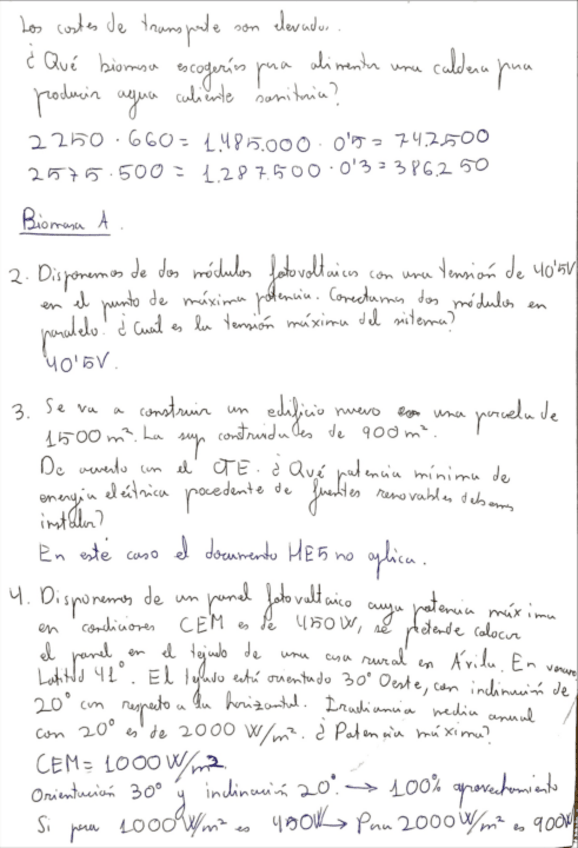 Los costes de transporte son elevados.
¿Qué biomasa escogerías para alimentar una caldera para
producir agua caliente sanitaria?
2250 · 660 = 1.485.000 · 0'5 = 742.500
2575 · 500 = 1.287.500 · 0'3 = 386.250
Biomasa A.
2. Disponemos de dos módulos fotovoltaicos con una tensión de 40'5V
en el punto de máxima potencia. Conectamos dos módulos en
paralelo. ¿Cuál es la tensión máxima del sistema?
40'5V.
3. Se va a construir un edificio nuevo en una parcela de
1500 m². La sup construida es de 900 m².
De acuerdo con el CTE. ¿Qué potencia mínima de
energía eléctrica procedente de fuentes renovables debemos
instalar?
En este caso el documento HE5 no aplica.
4. Disponemos de un panel fotovoltaico cuya potencia máxima
en condiciones CEM es de 450W, se pretende colocar
el panel en el tejado de una casa rural en Ávila. En verano
Latitud 41°. El tejado está orientado 30° Oeste, con inclinación de
20° con respecto a la horizontal. Irradiancia media anual
con 20° es de 2000 W/m². ¿Potencia máxima?
CEM = 1000 W/m²
Orientación 30° y inclinación 20°. → 100% aprovechamiento
Si para 1000 W/m² es 450W → Para 2000 W/m² es 900W